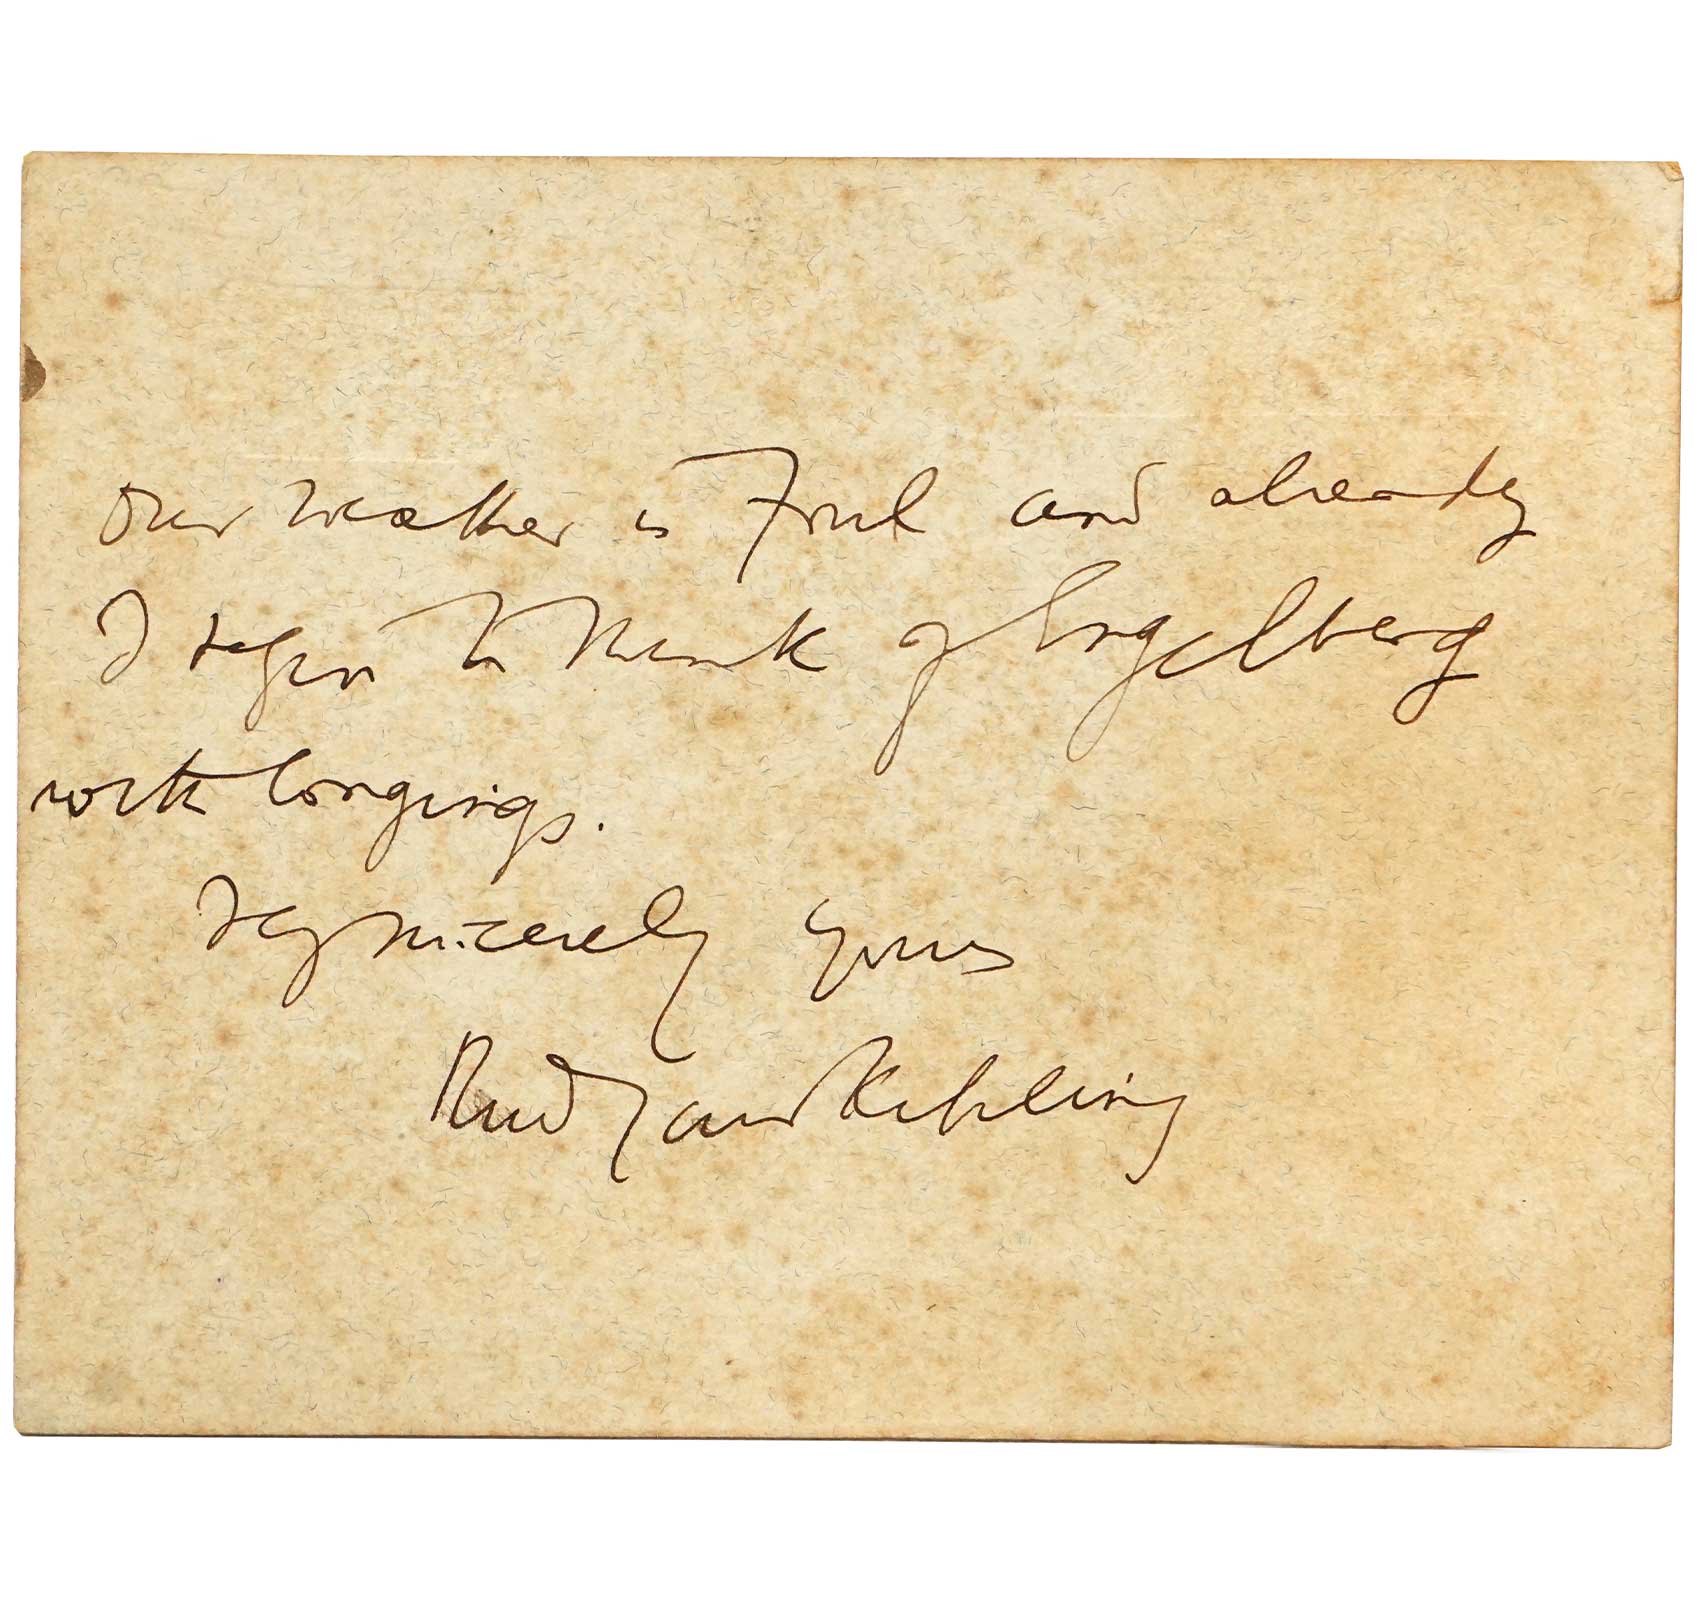 Our weather is Foul and already
I begin to think of Engelberg
with longings.
Very sincerely yours
Rudyard Kipling